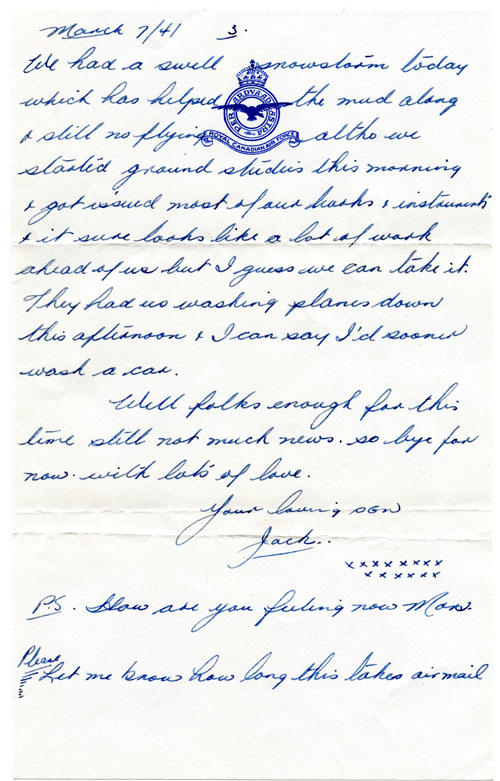 March 7/41 3.
We had a swell snowstorm today
PER ARDVA AD ASTRA
which has helped the mud along
& still no flying altho we
ROYAL CANADIAN AIR FORCE
started ground studies this morning
& got issued most of our books & instruments
& it sure looks like a lot of work
ahead of us but I guess we can take it.
They had us washing planes down
this afternoon & I can say I'd sooner
wash a car.
Well folks enough for this
time still not much news. so bye for
now. with lots of love.
Your loving son
Jack..
xxxxxxxx
xxxxxx
P.S. How are you feeling now Mom.
Please
Let me know how long this takes air mail